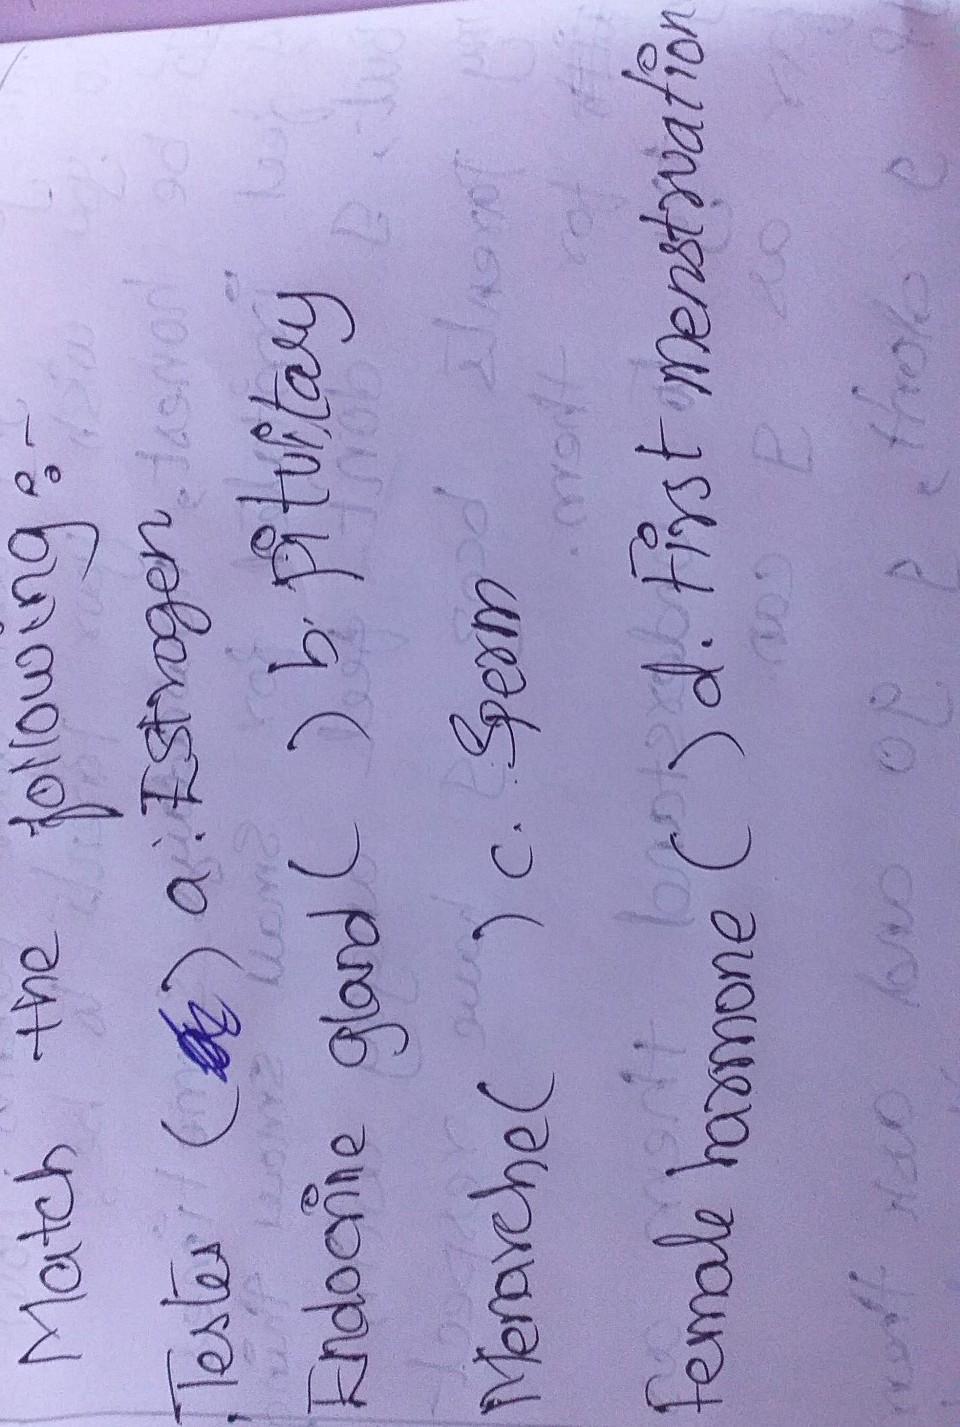 Match the following :-
Testes ( ) a. Estrogen
Endocrine gland ( ) b. Pituitary
Menarche ( ) c. Sperm
Female harmone ( ) d. First menstruation